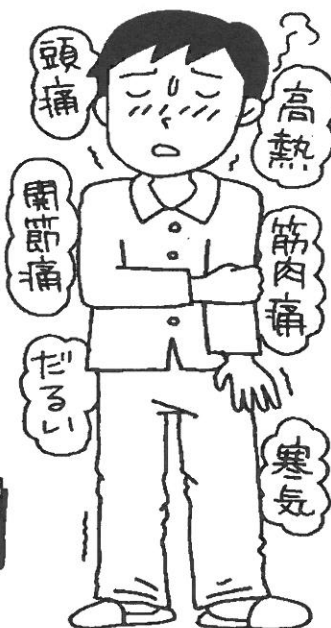 頭痛
高熱
関節痛
筋肉痛
だるい
寒気